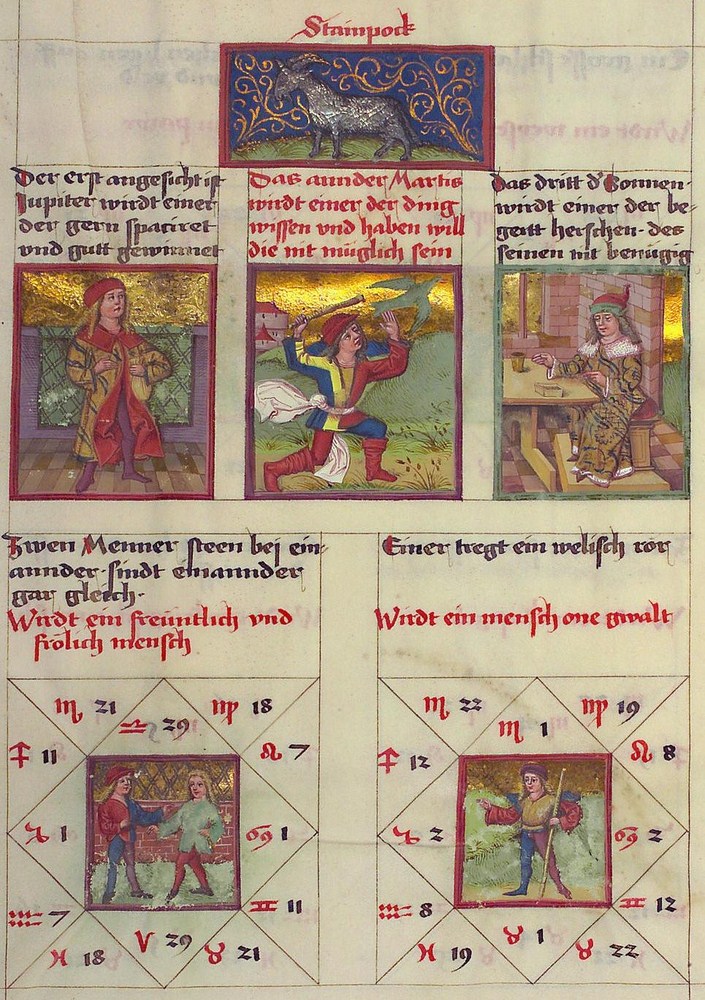 Stainpock
Der erst angesicht ist
Jupiter wirdt einer
der gern spaciret
vnd gutt gewinnet
Das annder Martis
wirdt einer der ding
wissen vnd haben will
die nit müglich sein
Das dritt d' Sonnen·
wirdt einer der be-
gertt herschen· des
seinen nit benügig
Zwen Menner steen bei ein-
annder· sindt einannder
gar gleich·
Wirdt ein freüntlich vnd
frölich mensch
Einer tregt ein welisch rör
Wirdt ein mensch one gwalt
♏ 21
♎ 29
♍ 18
♐ 11
♌ 7
♑ 1
♋ 1
♒ 7
♊ 11
♓ 18
♈ 29
♉ 21
♏ 22
♏ 1
♍ 19
♐ 12
♌ 8
♑ 2
♋ 2
♒ 8
♊ 12
♓ 19
♉ 1
♉ 22